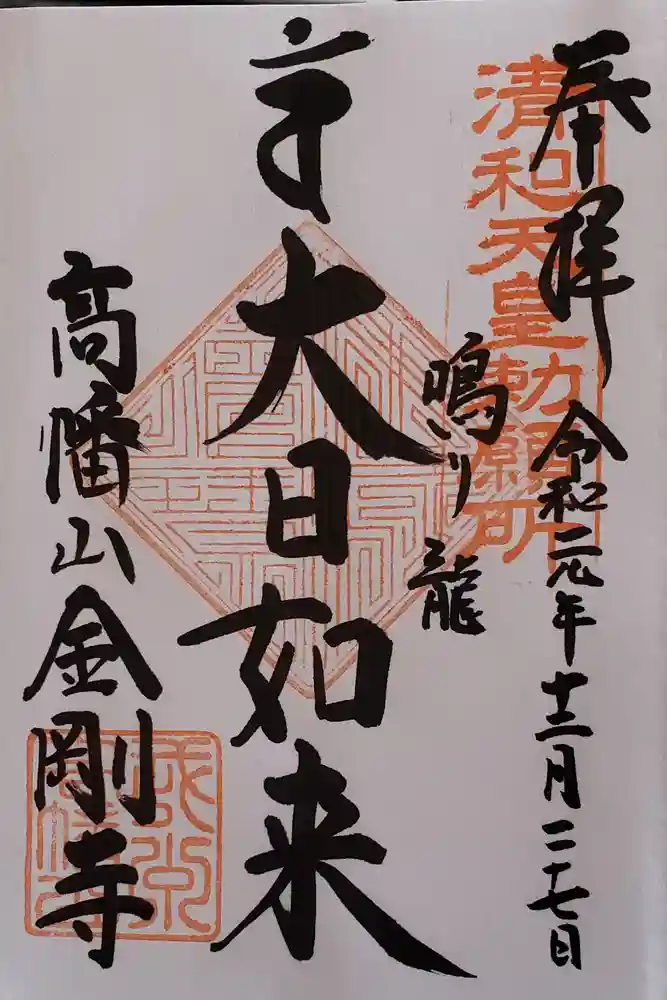 奉拝
令和元年十二月二十七日
清和天皇勅願所
鳴り龍
大日如来
高幡山金剛寺